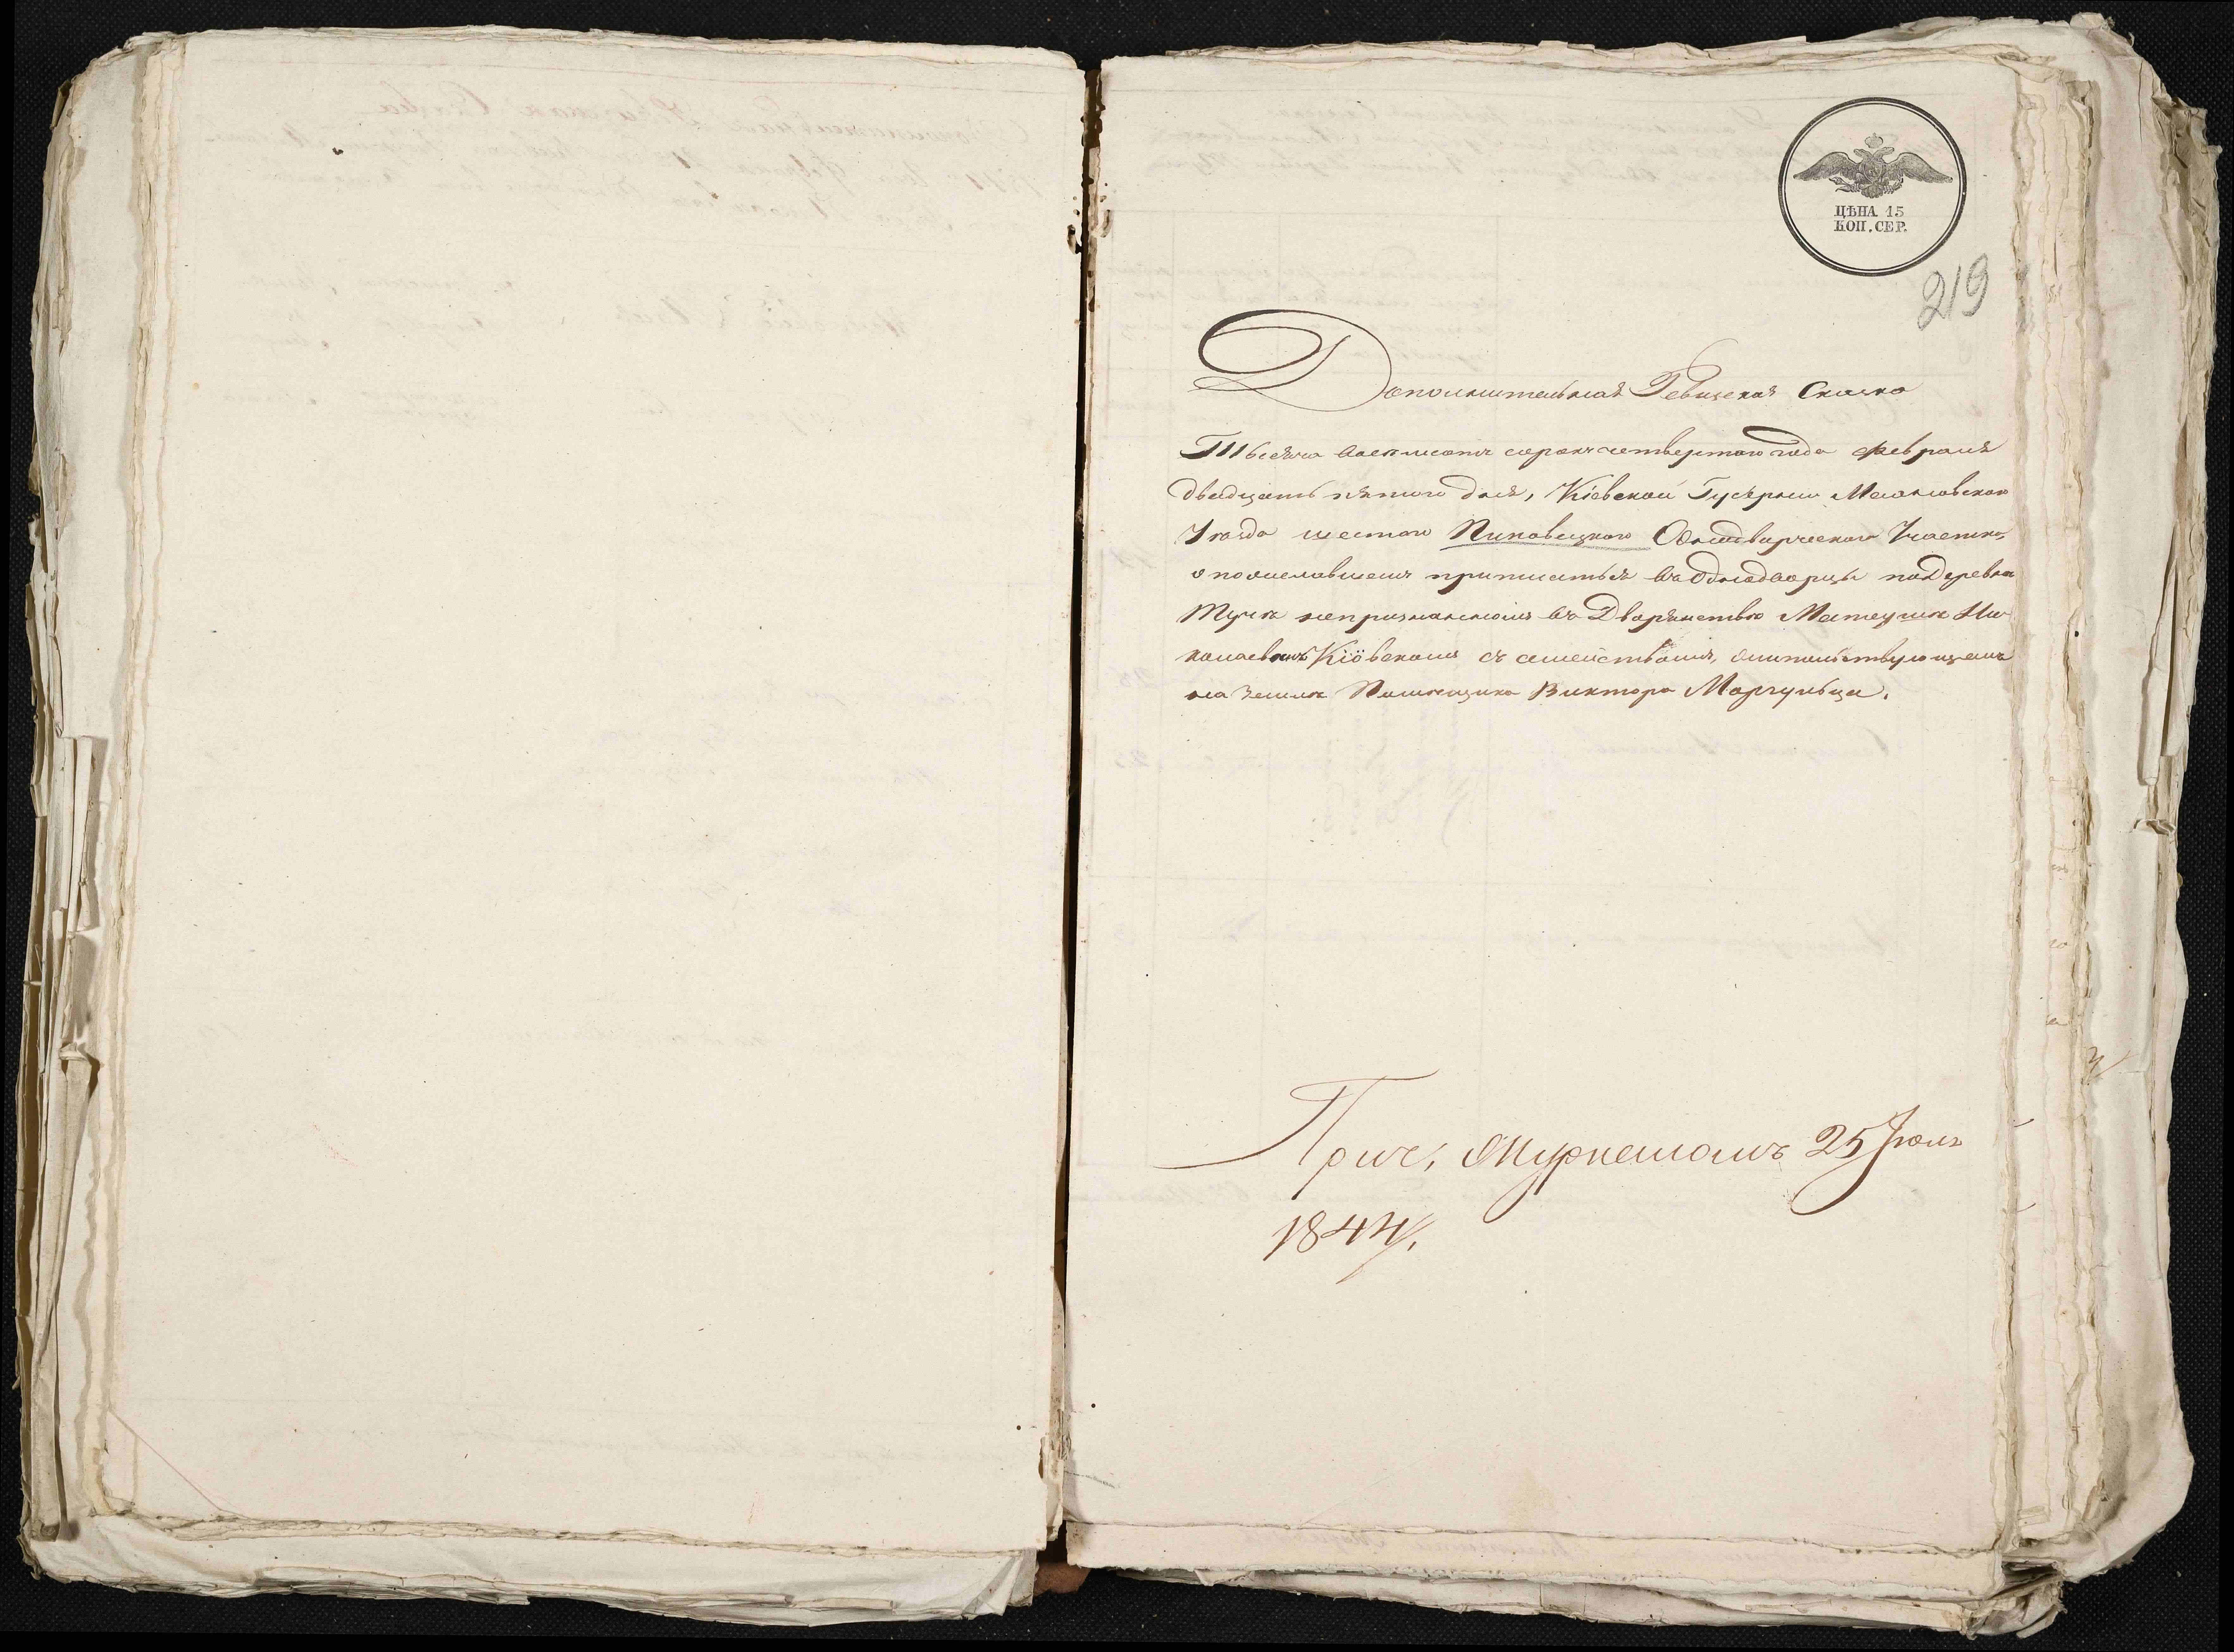 ЦѢНА 15
КОП. СЕР.
219
Дополнительная Ревизская Сказка
Тысяча восемсотъ сорокъ четвертого года февраля
двадцать пятого дня, Кіевской Губерніи Махновского
Уѣзда шестого Пиковецкого Однодворческого Участка,
о пожелавшемъ приписаться въ Однодворцы по Деревни
непризнанномъ въ Дворянствѣ Матеушѣ Ни-
колаевѣ Кіовскомъ съ семействомъ, жительствующемъ
на Землѣ Помѣщика Виктора
25 Іюля
1844.